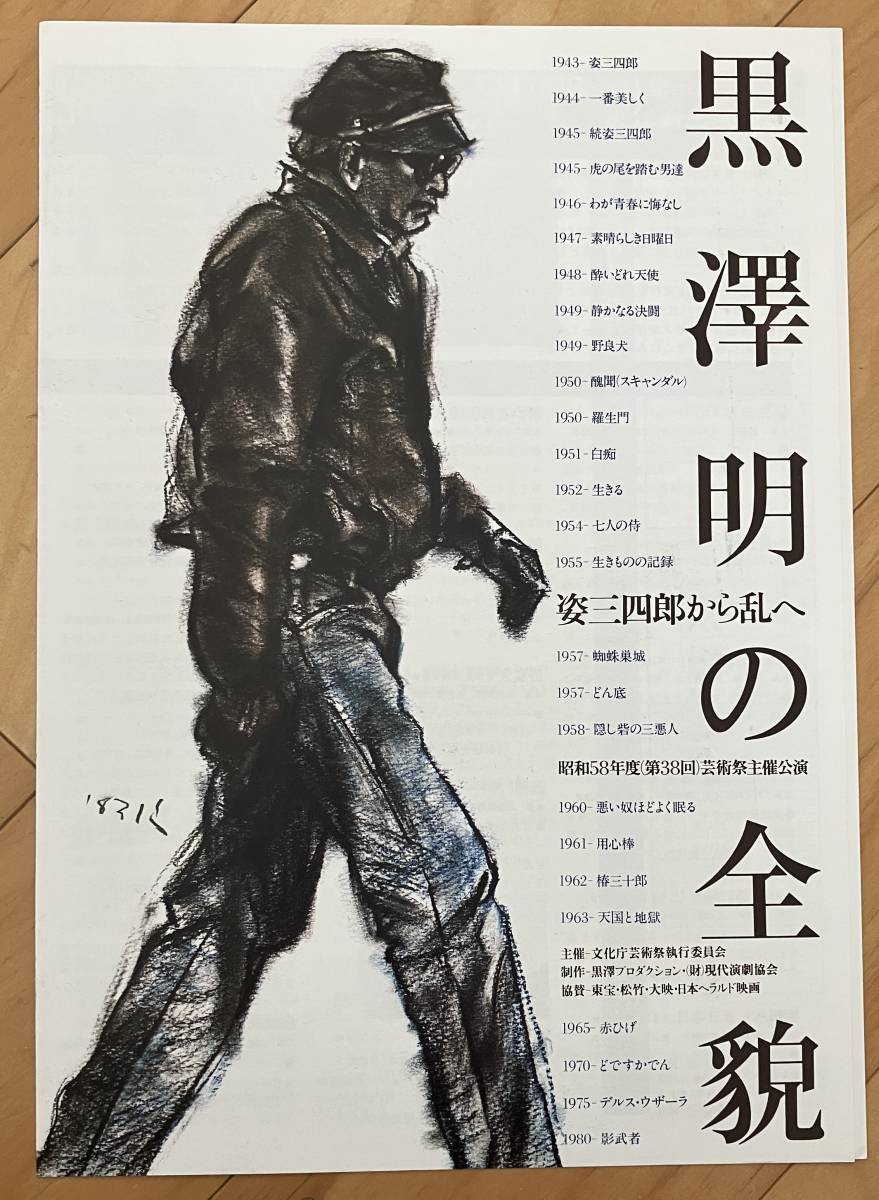 黒澤明の全貌
1943-姿三四郎
1944-一番美しく
1945-続姿三四郎
1945-虎の尾を踏む男達
1946-わが青春に悔なし
1947-素晴らしき日曜日
1948-酔いどれ天使
1949-静かなる決闘
1949-野良犬
1950-醜聞(スキャンダル)
1950-羅生門
1951-白痴
1952-生きる
1954-七人の侍
1955-生きものの記録
姿三四郎から乱へ
1957-蜘蛛巣城
1957-どん底
1958-隠し砦の三悪人
昭和58年度(第38回)芸術祭主催公演
1960-悪い奴ほどよく眠る
1961-用心棒
1962-椿三十郎
1963-天国と地獄
主催-文化庁芸術祭執行委員会
制作-黒澤プロダクション・(財)現代演劇協会
協賛-東宝・松竹・大映・日本ヘラルド映画
1965-赤ひげ
1970-どですかでん
1975-デルス・ウザーラ
1980-影武者